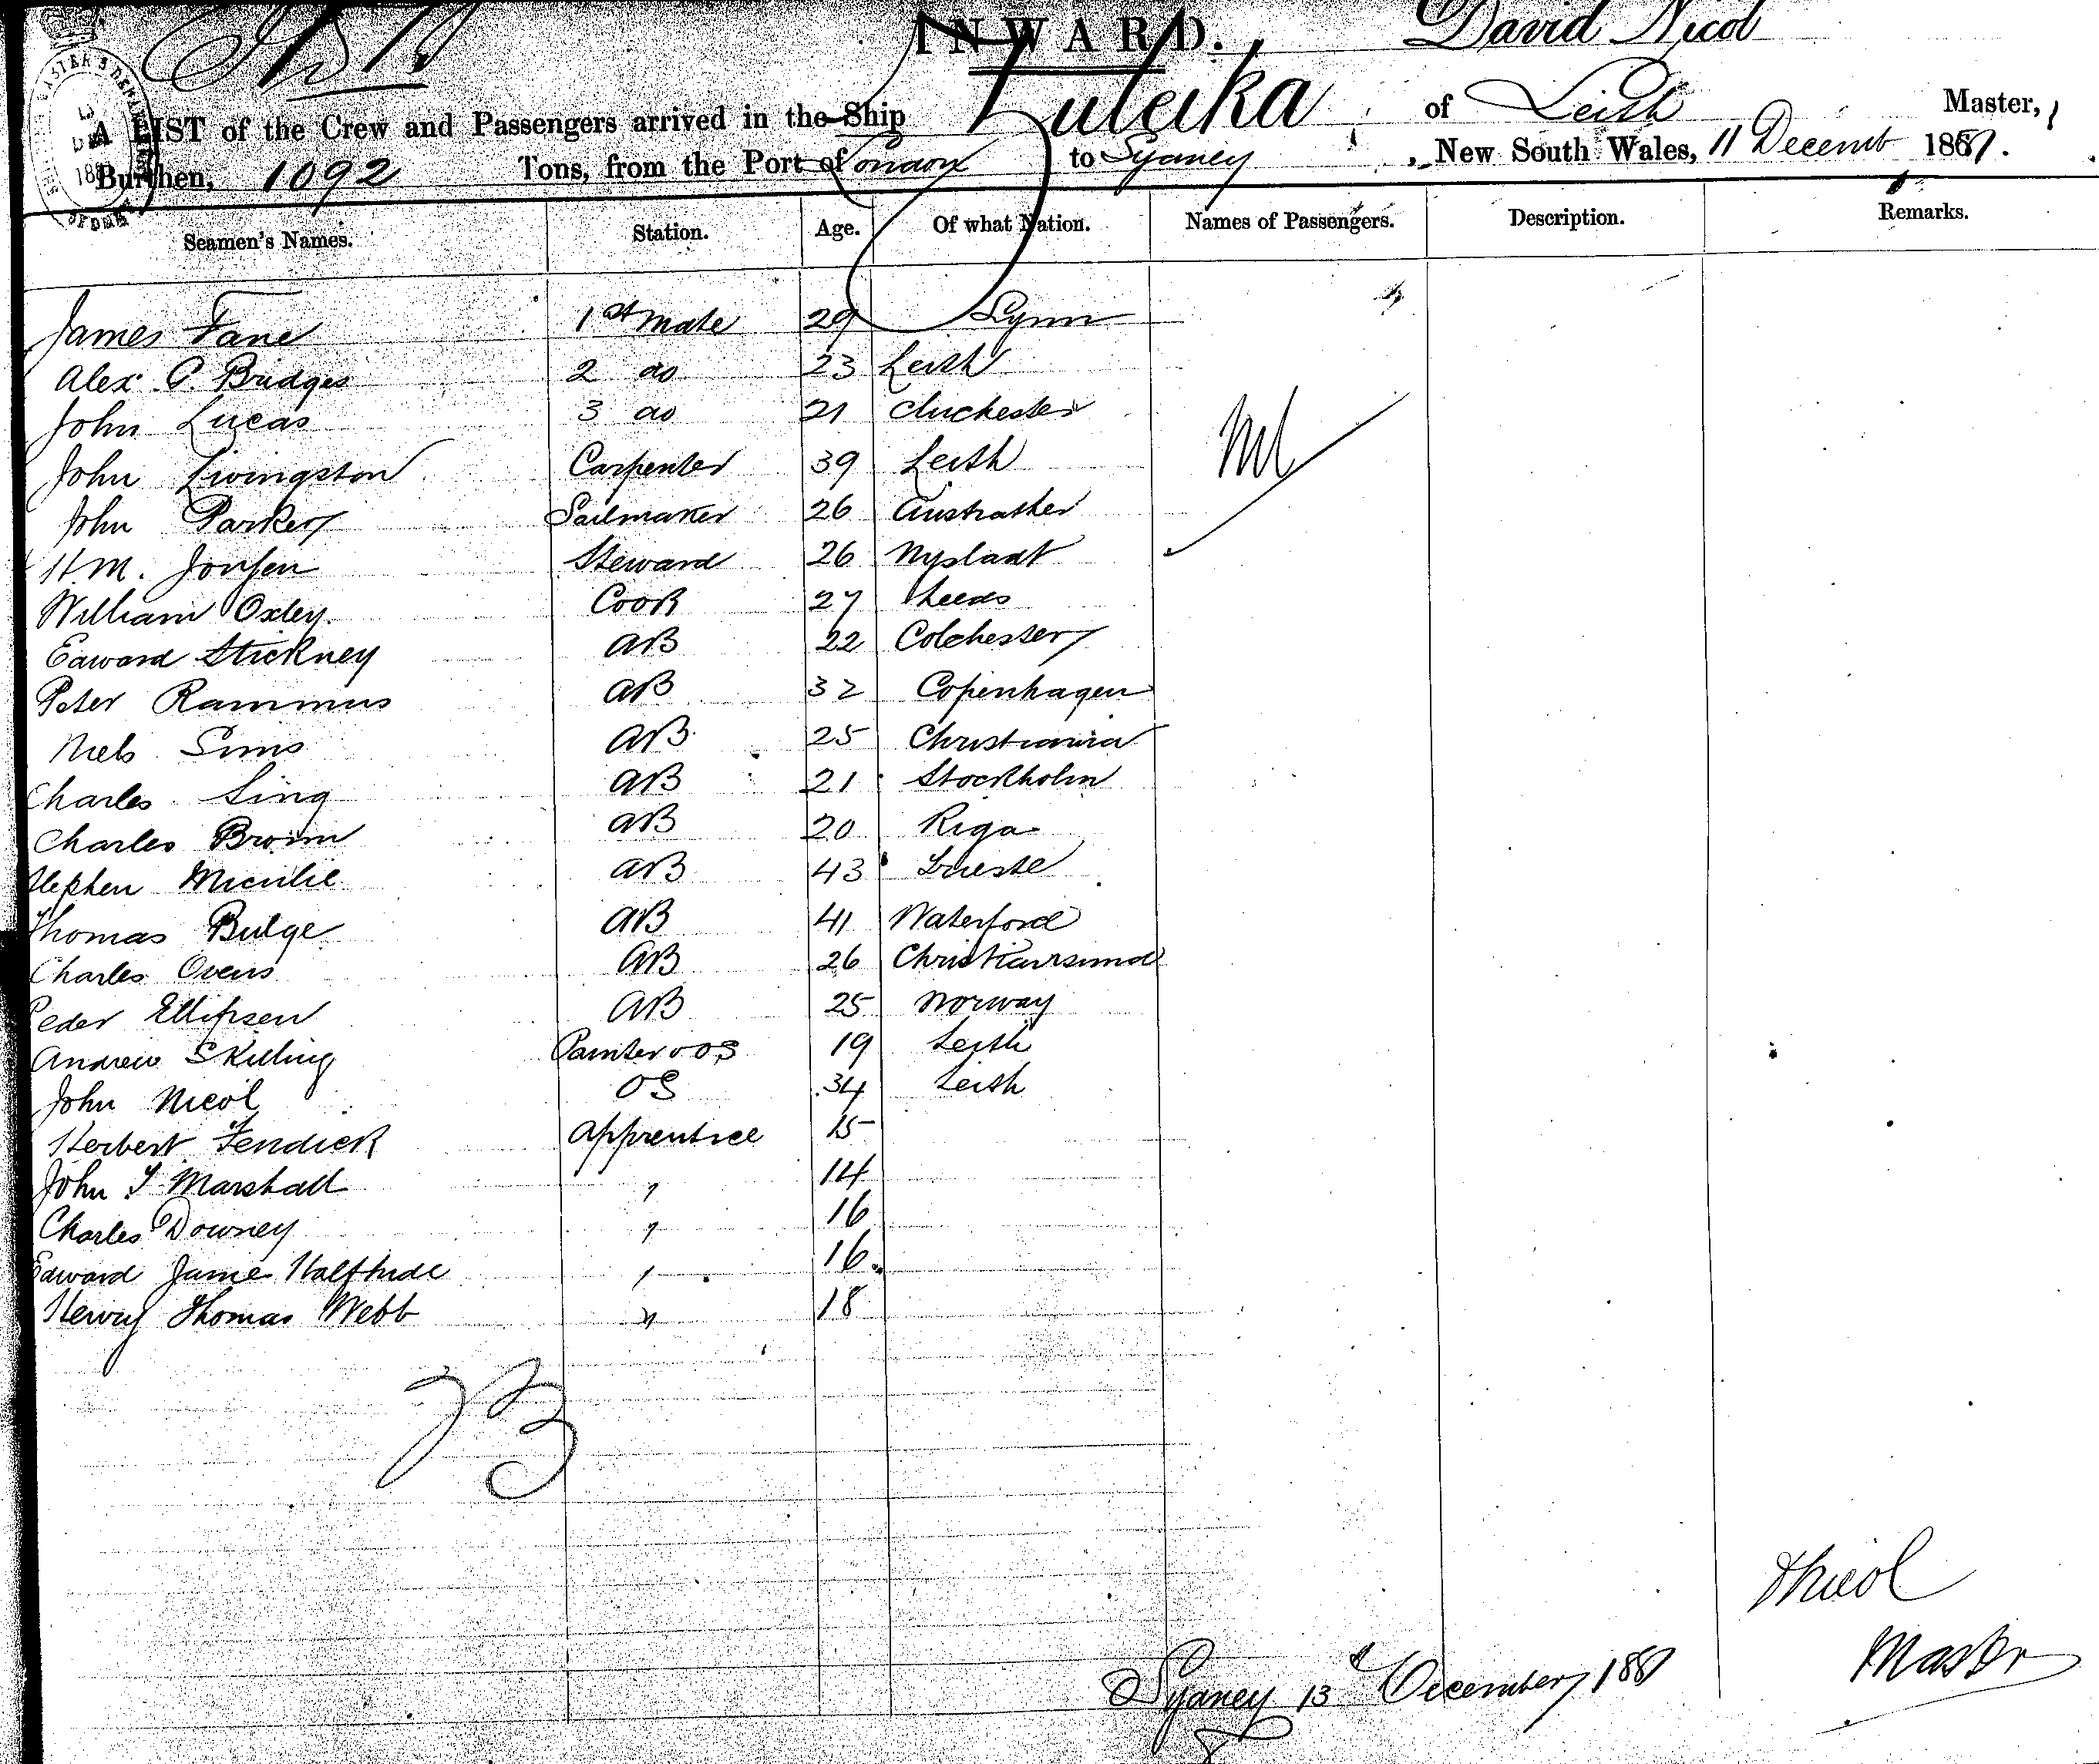 INWARD.
David Nicol
A LIST of the Crew and Passengers arrived in the Ship Zuleika of Leith Master,
Burthen, 1092 Tons, from the Port of London to Sydney, New South Wales, 11 Decemb 1881.
Seamen's Names. Station. Age. Of what Nation. Names of Passengers. Description. Remarks.
James Fane 1st Mate 29 Lynn
Alex. C. Bridges 2 do 23 Leith
John Lucas 3 do 21 Chichester
John Livingston Carpenter 39 Leith
John Parker Sailmaker 26
H.M. Steward 26 Nystadt
William Oxley. Cook 27 Leeds
Edward Stickney AB 22 Colchester
Peter Rammus AB 32 Copenhagen
Niels Sims AB 25 Christiania
Charles Ling AB 21 Stockholm
Charles Brown AB 20 Riga
Stephen AB 43 Trieste
Thomas Bulge AB 41 Waterford
Charles Ovens AB 26 Christiansund
Peder Ellipsen AB 25 Norway
Andrew Skilling Painter & OS 19 Leith
John Nicol OS 34 Leith
Herbert Fendick Apprentice 15
John T Marshall " 14
Charles Downey " 16
Edward James Halfhide " 16
Henry Thomas Webb " 18
Nil
23
DNicol
Master
Sydney 13th December 1881